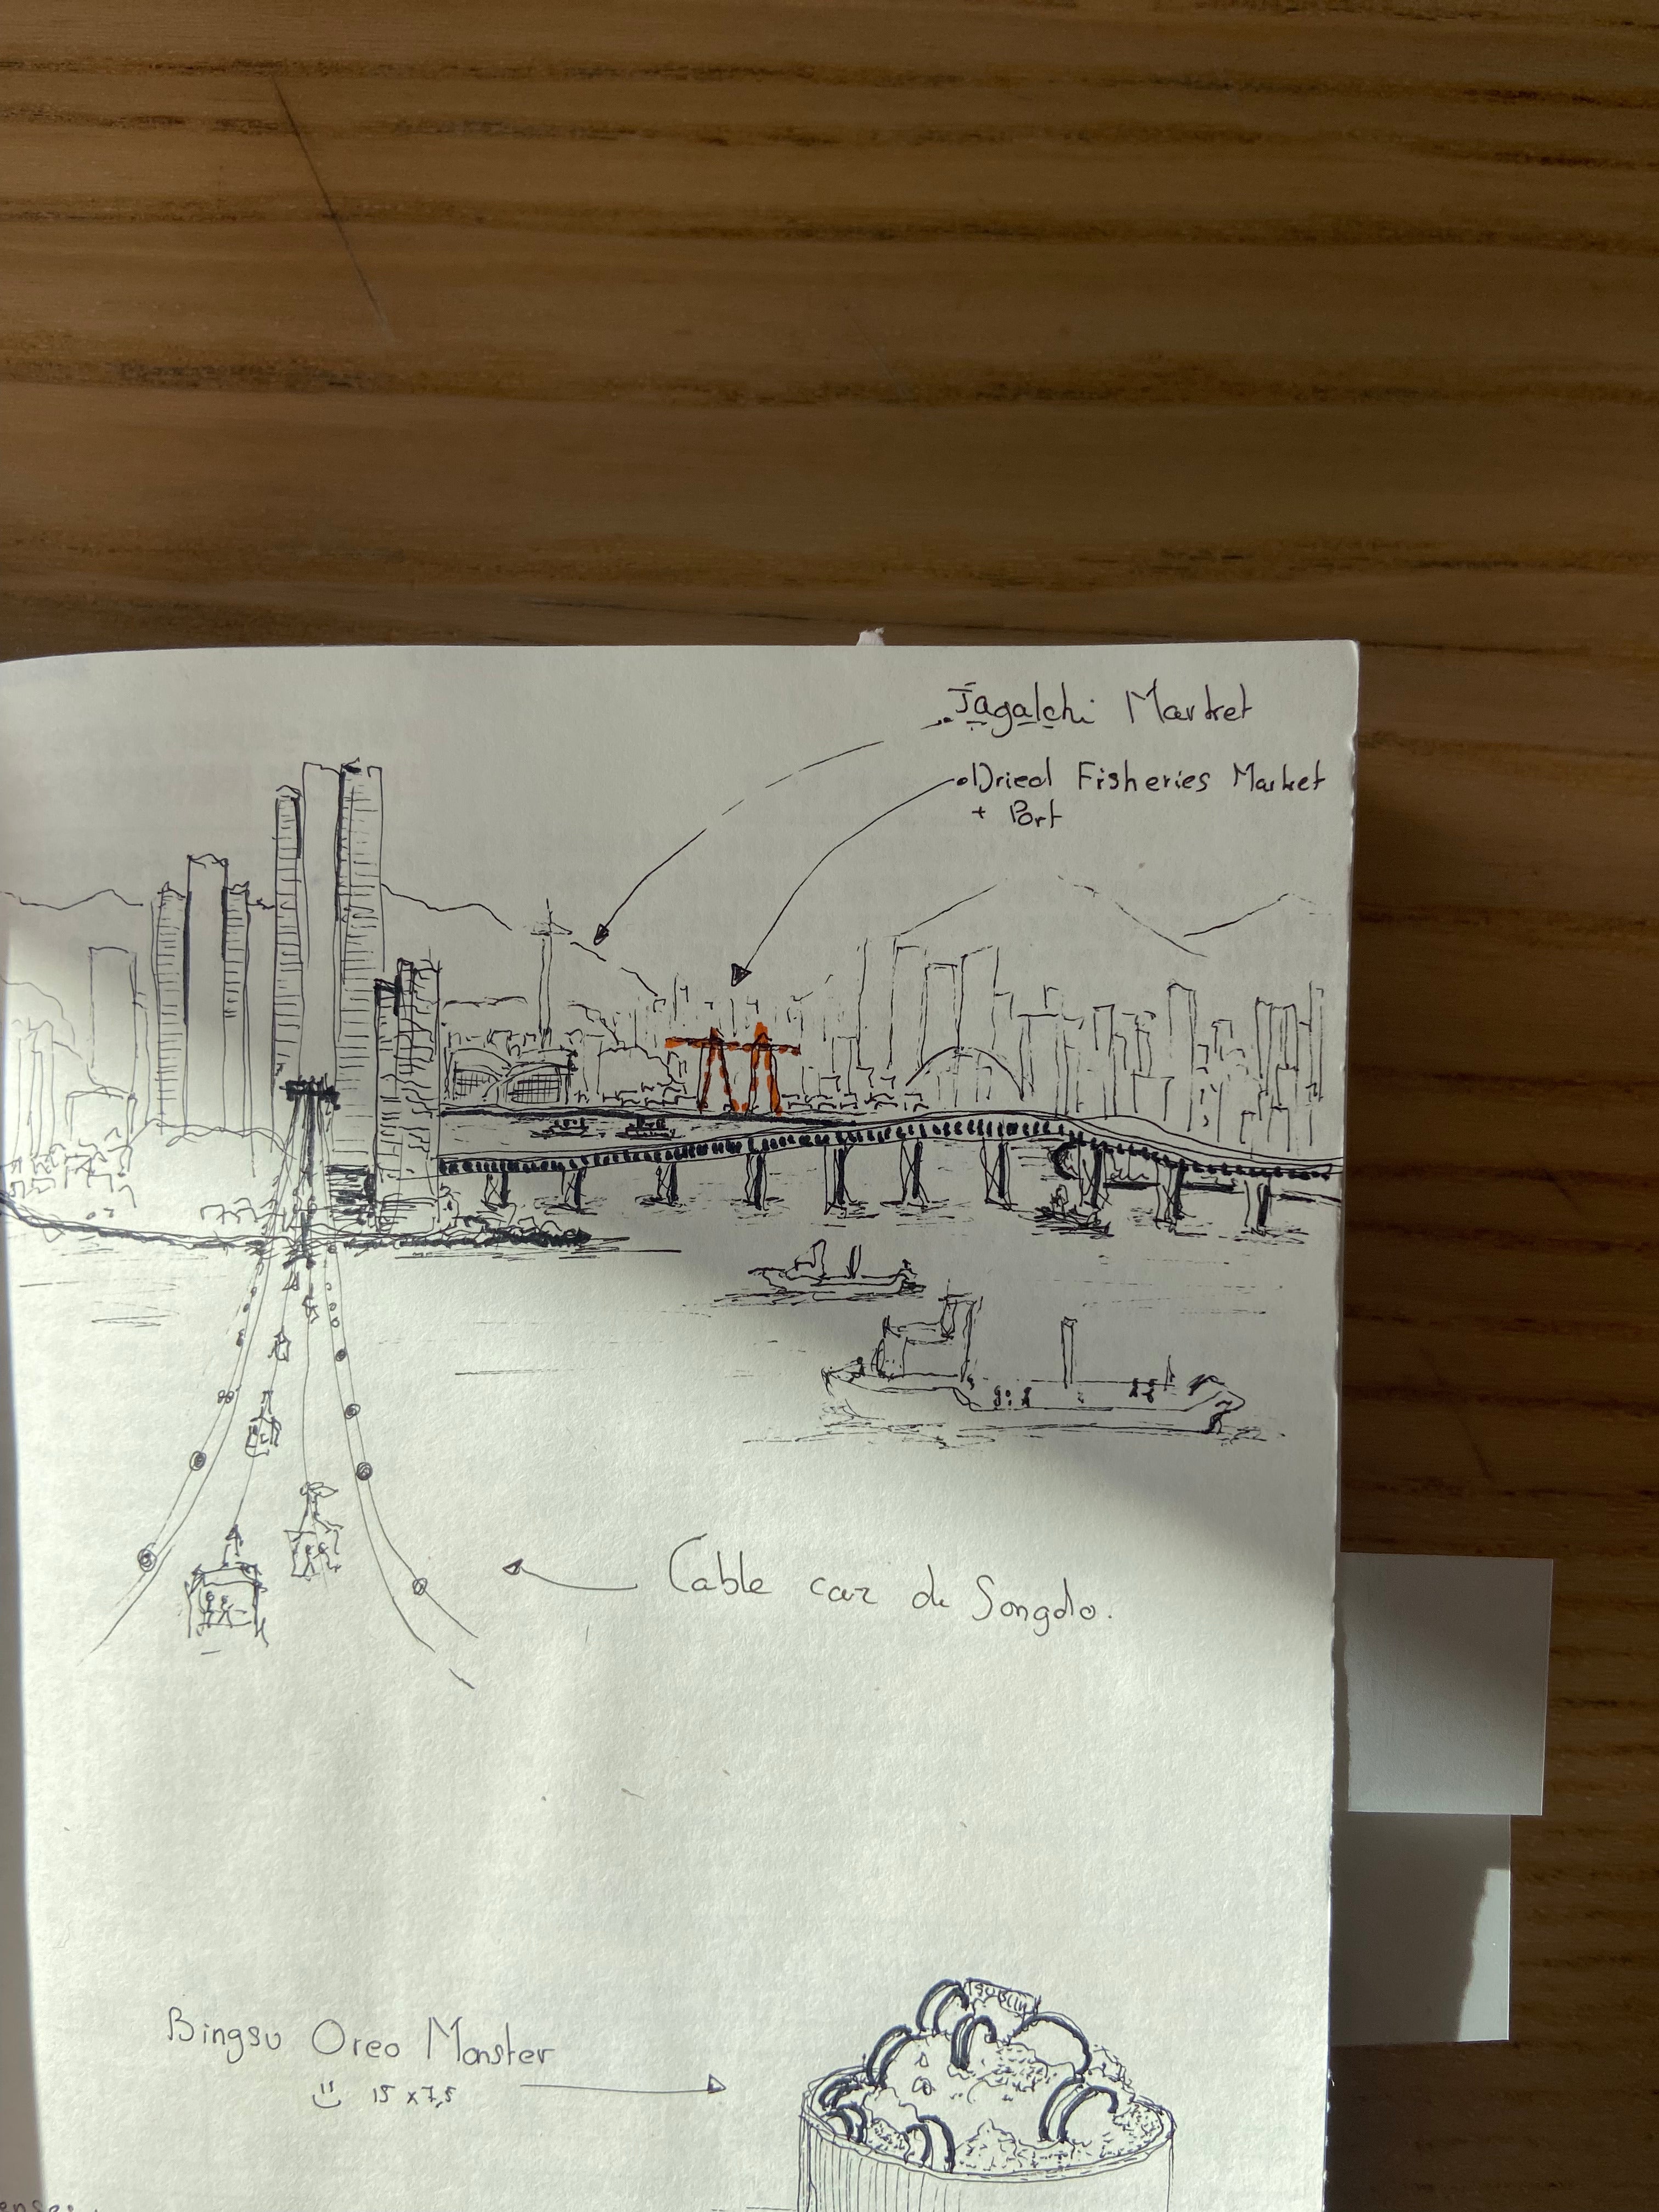 Jagalchi Market
Dried Fisheries Market
+ Port
Cable car de Songdo.
Bingsu Oreo Monster
15 x 7,5